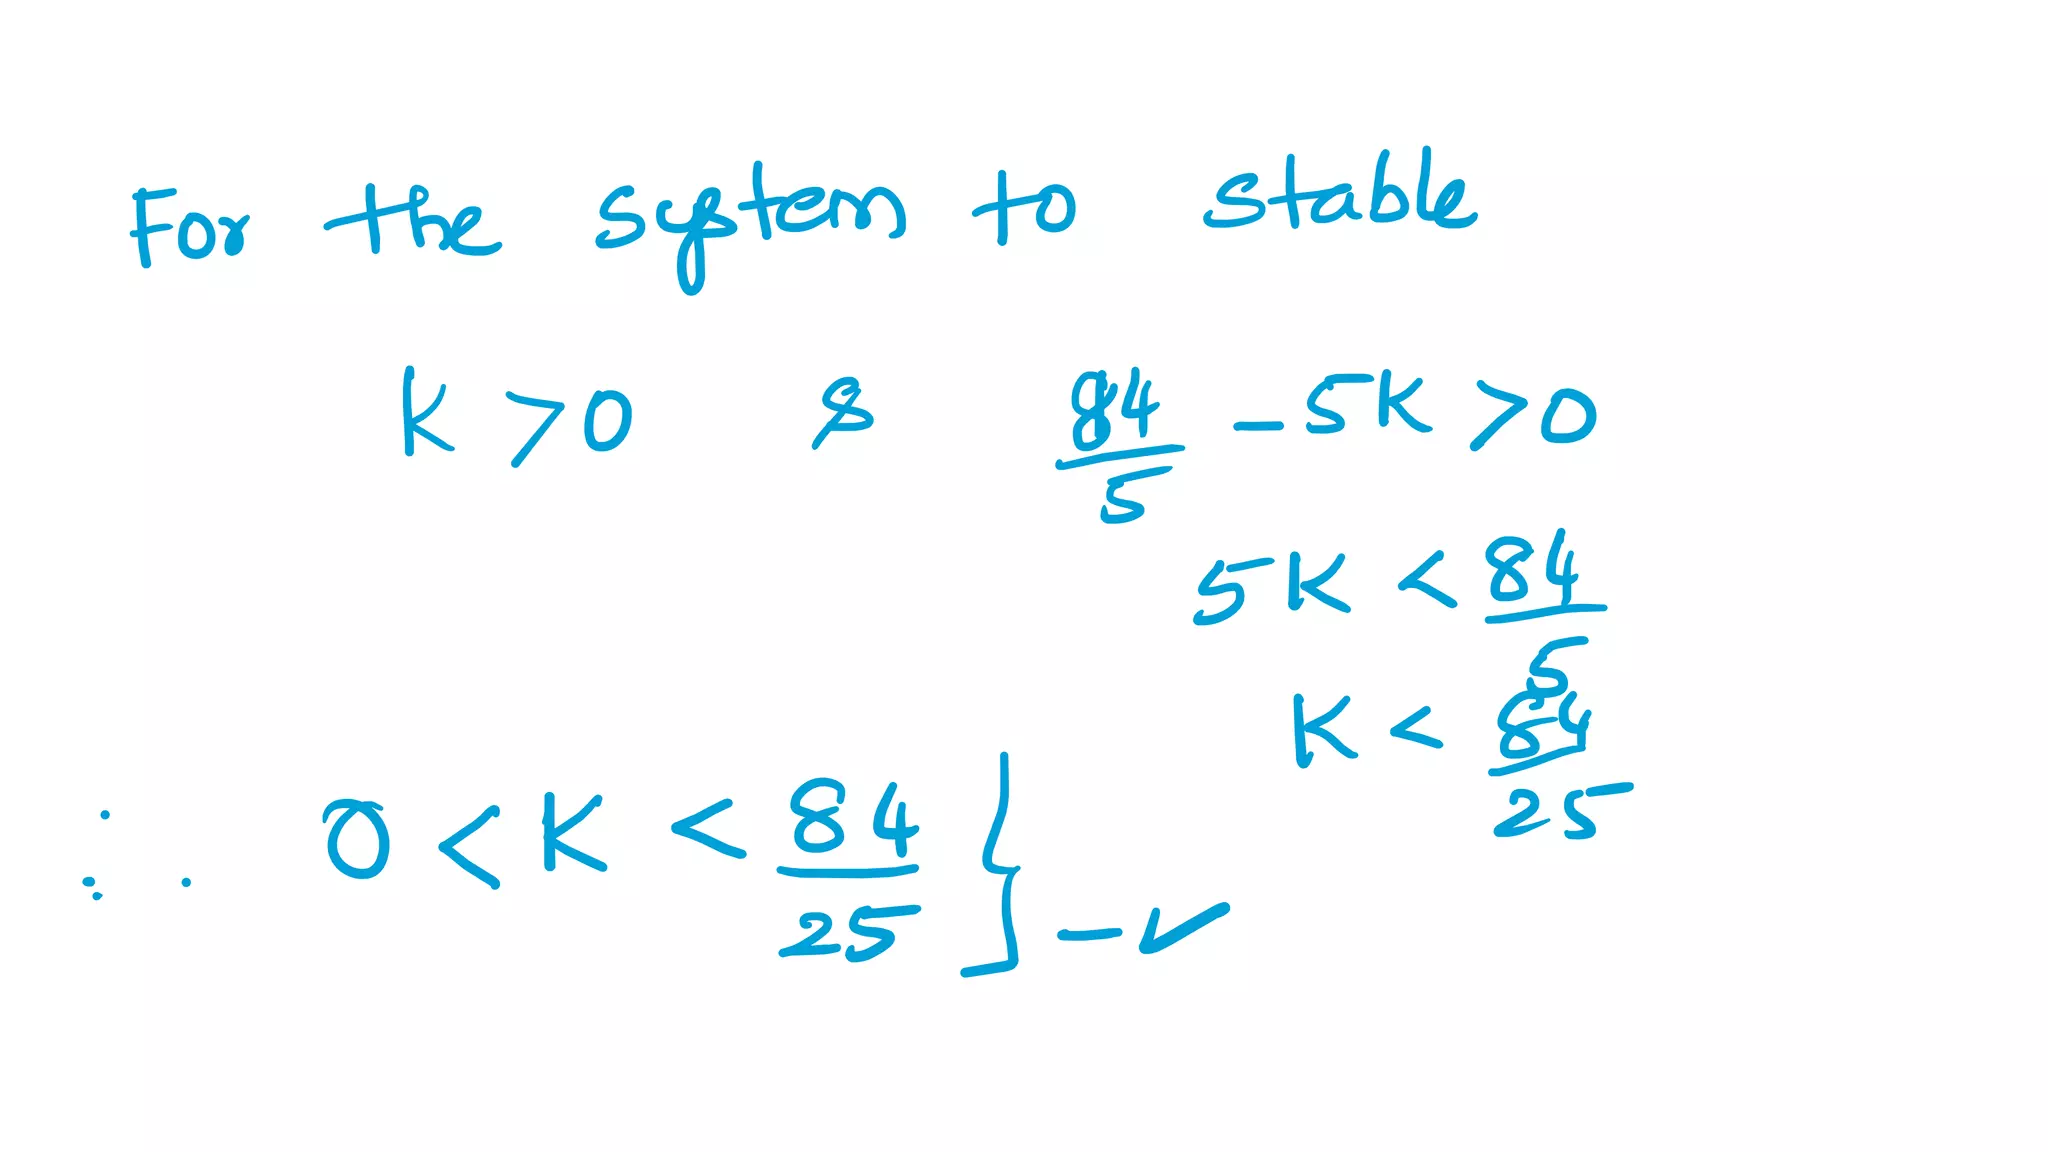 For the system to stable
K > 0 & 84/5 - 5K > 0
5K < 84/5
K < 84/25
∴ 0 < K < 84/25 } - ✓